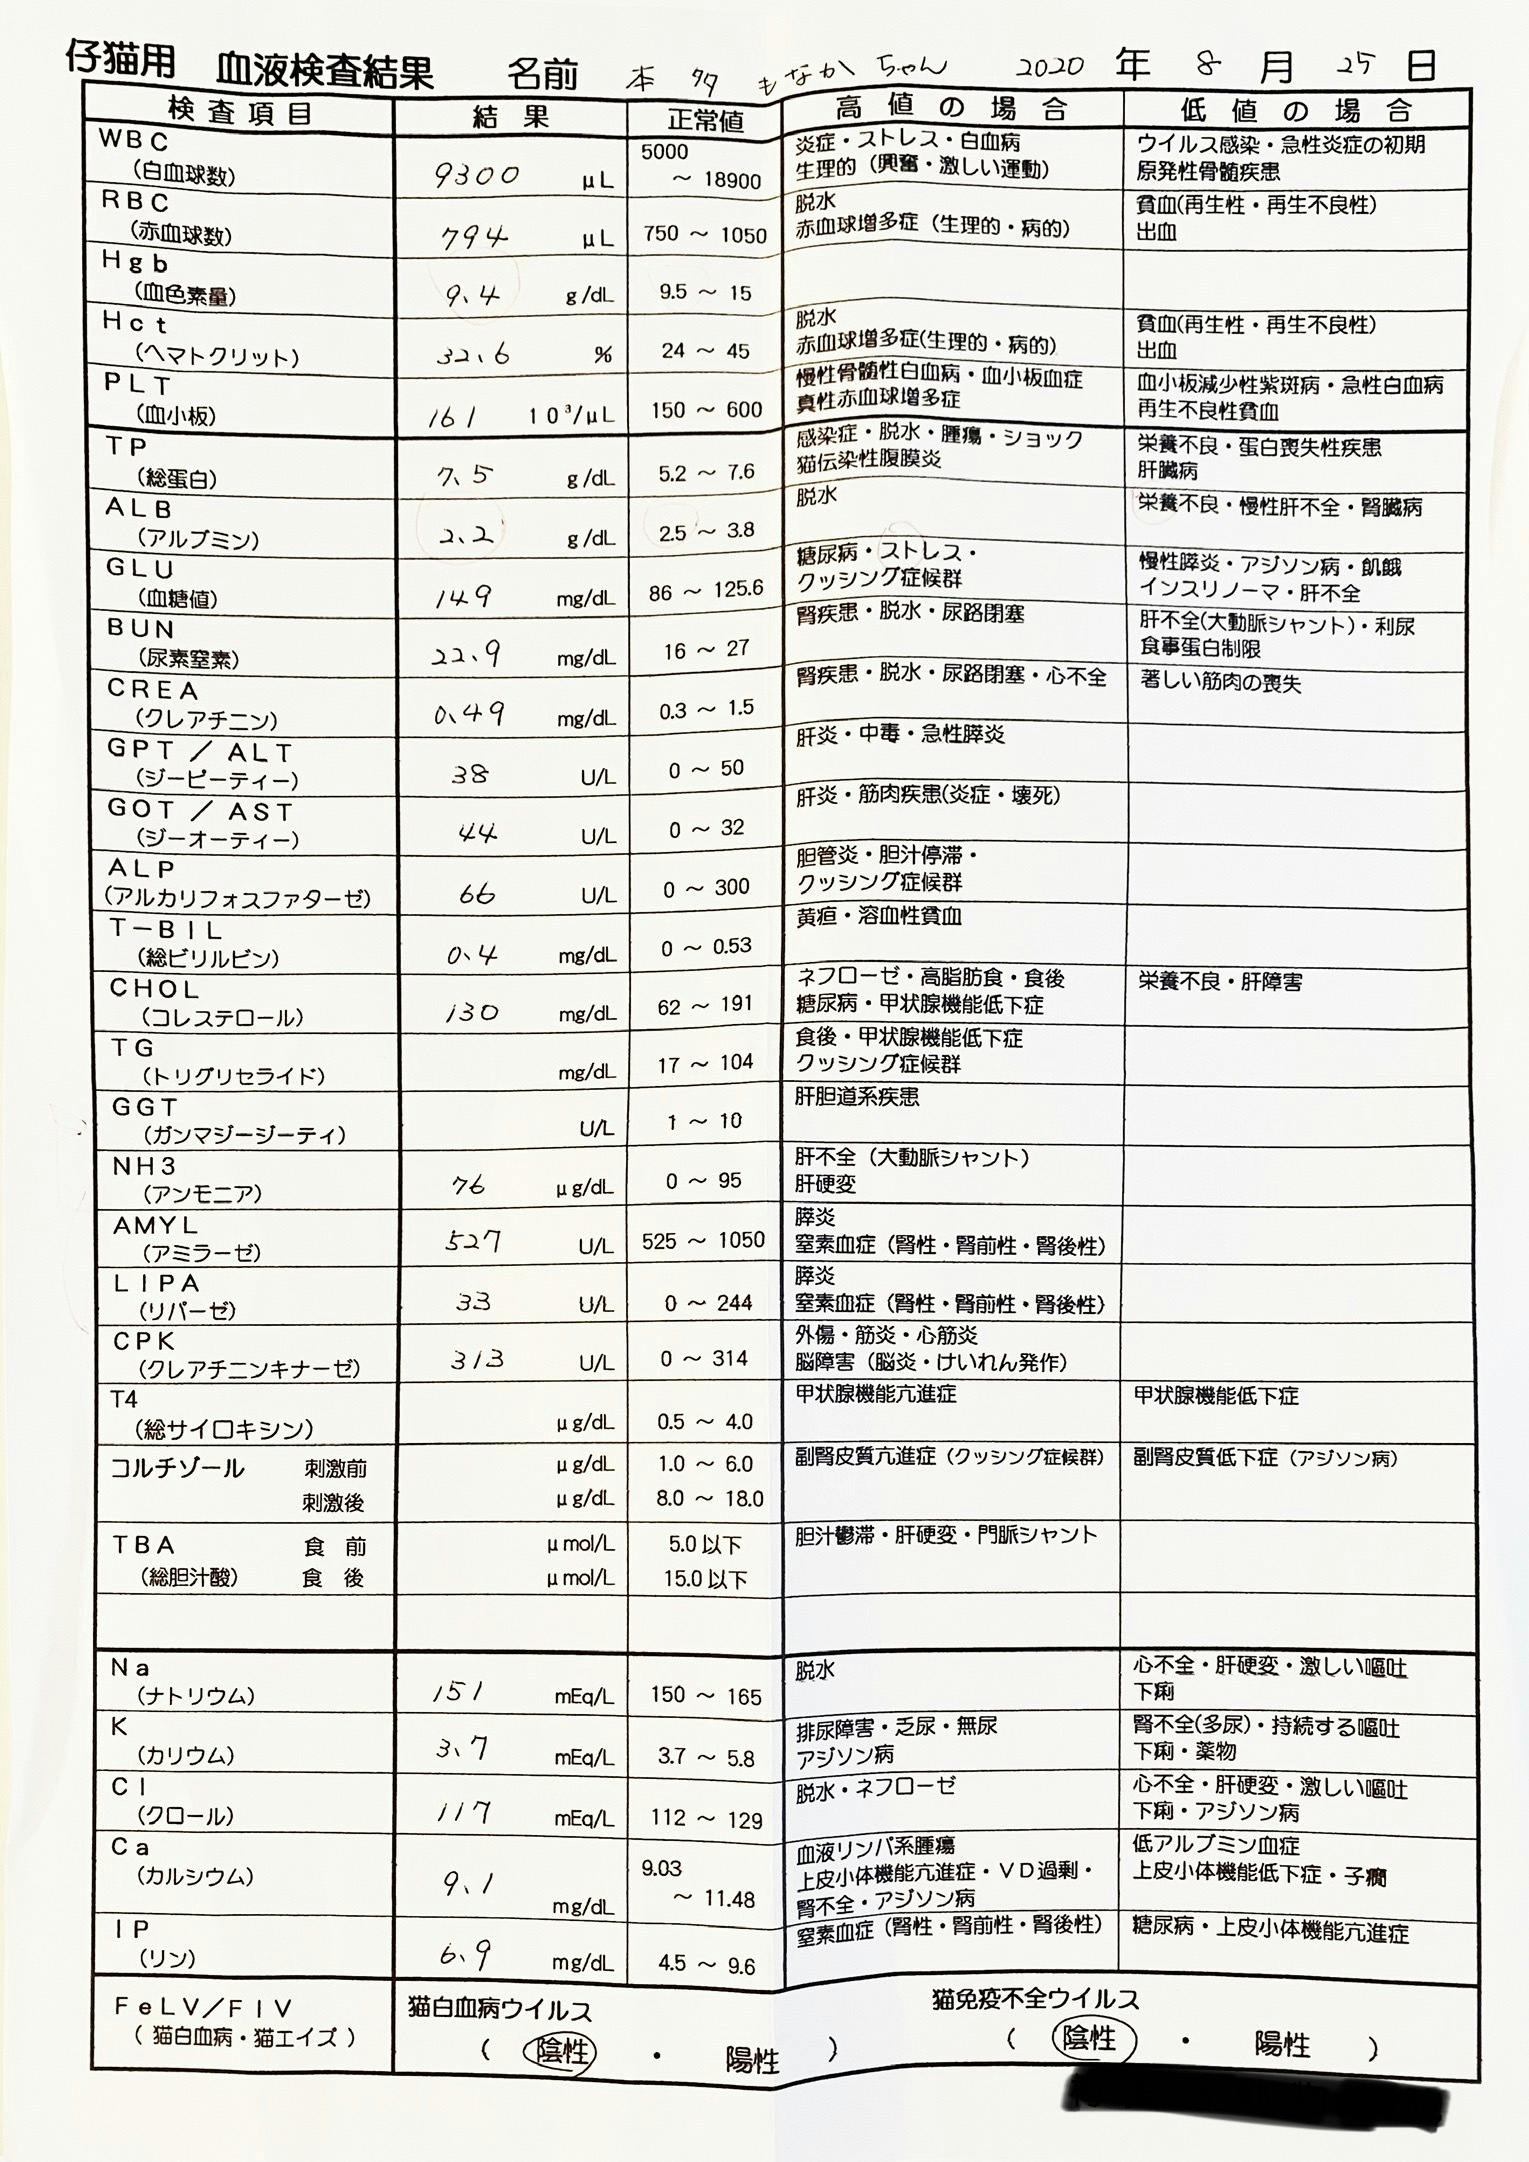 仔猫用 血液検査結果 名前 本多 もなかちゃん 2020年 8月 25日
検査項目 結果 正常値 高値の場合 低値の場合
WBC 5000 炎症・ストレス・白血病 ウイルス感染・急性炎症の初期
（白血球数） 9300 μL ～ 18900 生理的（興奮・激しい運動） 原発性骨髄疾患
RBC 脱水 貧血(再生性・再生不良性)
（赤血球数） 794 μL 750 ～ 1050 赤血球増多症（生理的・病的） 出血
Hgb
（血色素量） 9.4 g/dL 9.5 ～ 15
Hct 脱水 貧血(再生性・再生不良性)
（ヘマトクリット） 32.6 % 24 ～ 45 赤血球増多症(生理的・病的) 出血
PLT 慢性骨髄性白血病・血小板血症 血小板減少性紫斑病・急性白血病
（血小板） 161 10³/μL 150 ～ 600 真性赤血球増多症 再生不良性貧血
TP 感染症・脱水・腫瘍・ショック 栄養不良・蛋白喪失性疾患
（総蛋白） 7.5 g/dL 5.2 ～ 7.6 猫伝染性腹膜炎 肝臓病
ALB 脱水 栄養不良・慢性肝不全・腎臓病
（アルブミン） 2.2 g/dL 2.5 ～ 3.8
GLU 糖尿病・ストレス・ 慢性膵炎・アジソン病・飢餓
（血糖値） 149 mg/dL 86 ～ 125.6 クッシング症候群 インスリノーマ・肝不全
BUN 腎疾患・脱水・尿路閉塞 肝不全(大動脈シャント)・利尿
（尿素窒素） 22.9 mg/dL 16 ～ 27 食事蛋白制限
CREA 腎疾患・脱水・尿路閉塞・心不全 著しい筋肉の喪失
（クレアチニン） 0.49 mg/dL 0.3 ～ 1.5
GPT／ALT 肝炎・中毒・急性膵炎
（ジーピーティー） 38 U/L 0 ～ 50
GOT／AST 肝炎・筋肉疾患(炎症・壊死)
（ジーオーティー） 44 U/L 0 ～ 32
ALP 胆管炎・胆汁停滞・
（アルカリフォスファターゼ） 66 U/L 0 ～ 300 クッシング症候群
T－BIL 黄疸・溶血性貧血
（総ビリルビン） 0.4 mg/dL 0 ～ 0.53
CHOL ネフローゼ・高脂肪食・食後 栄養不良・肝障害
（コレステロール） 130 mg/dL 62 ～ 191 糖尿病・甲状腺機能低下症
TG 食後・甲状腺機能低下症
（トリグリセライド） mg/dL 17 ～ 104 クッシング症候群
GGT 肝胆道系疾患
（ガンマジージーティ） U/L 1 ～ 10
NH3 肝不全（大動脈シャント）
（アンモニア） 76 μg/dL 0 ～ 95 肝硬変
AMYL 膵炎
（アミラーゼ） 527 U/L 525 ～ 1050 窒素血症（腎性・腎前性・腎後性）
LIPA 膵炎
（リパーゼ） 33 U/L 0 ～ 244 窒素血症（腎性・腎前性・腎後性）
CPK 外傷・筋炎・心筋炎
（クレアチニンキナーゼ） 313 U/L 0 ～ 314 脳障害（脳炎・けいれん発作）
T4 甲状腺機能亢進症 甲状腺機能低下症
（総サイロキシン） μg/dL 0.5 ～ 4.0
コルチゾール 刺激前 μg/dL 1.0 ～ 6.0 副腎皮質亢進症（クッシング症候群） 副腎皮質低下症（アジソン病）
刺激後 μg/dL 8.0 ～ 18.0
TBA 食前 μmol/L 5.0以下 胆汁鬱滞・肝硬変・門脈シャント
（総胆汁酸） 食後 μmol/L 15.0以下
Na 脱水 心不全・肝硬変・激しい嘔吐
（ナトリウム） 151 mEq/L 150 ～ 165 下痢
K 排尿障害・乏尿・無尿 腎不全(多尿)・持続する嘔吐
（カリウム） 3.7 mEq/L 3.7 ～ 5.8 アジソン病 下痢・薬物
Cl 脱水・ネフローゼ 心不全・肝硬変・激しい嘔吐
（クロール） 117 mEq/L 112 ～ 129 下痢・アジソン病
Ca 血液リンパ系腫瘍 低アルブミン血症
（カルシウム） 9.1 9.03 上皮小体機能亢進症・VD過剰・ 上皮小体機能低下症・子癇
mg/dL ～ 11.48 腎不全・アジソン病
IP 窒素血症（腎性・腎前性・腎後性） 糖尿病・上皮小体機能亢進症
（リン） 6.9 mg/dL 4.5 ～ 9.6
FeLV／FIV 猫白血病ウイルス 猫免疫不全ウイルス
（猫白血病・猫エイズ） （ 陰性 ・ 陽性 ） （ 陰性 ・ 陽性 ）